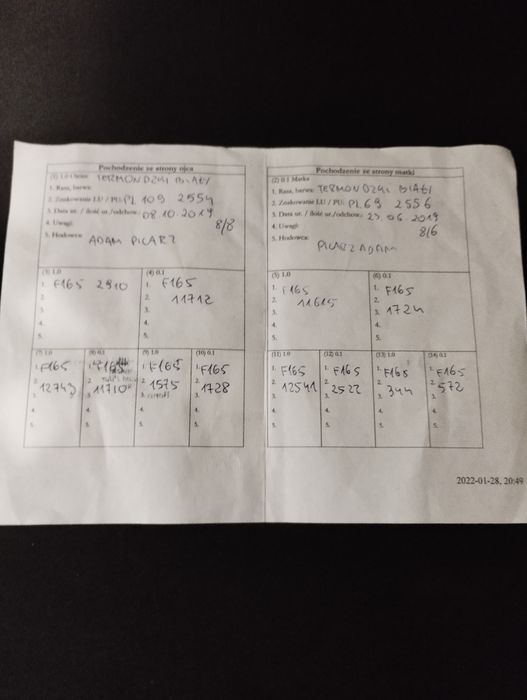 Pochodzenie ze strony ojca
(1) 1.0 Ojciec TERMONDZKI BIAŁY
1. Rasa, barwa:
2. Znakowanie LU / PU: PL 109 2554
3. Data ur. / ilość ur./odchow.: 08.10.2019
4. Uwagi: 8/8
5. Hodowca: ADAM PICARZ
(3) 1.0
1. F165 2910
2.
3.
4.
5.
(4) 0.1
1. F165
2. 11712
3.
4.
5.
(7) 1.0
1. F165
2. 12743
3.
4.
5.
(8) 0.1
1. F165
2. 11710
3.
4.
5.
(9) 1.0
1. F165
2. 1575
3.
4.
5.
(10) 0.1
1. F165
2. 1728
3.
4.
5.
Pochodzenie ze strony matki
(2) 0.1 Matka
1. Rasa, barwa: TERMONDZKI BIAŁY
2. Znakowanie LU / PU: PL 69 2556
3. Data ur. / ilość ur./odchow.: 25.06.2019
4. Uwagi: 8/6
5. Hodowca: PICARZ ADAM
(5) 1.0
1. F165
2. 11615
3.
4.
5.
(6) 0.1
1. F165
2.
3. 1724
4.
5.
(11) 1.0
1. F165
2. 12541
3.
4.
5.
(12) 0.1
1. F165
2. 2522
3.
4.
5.
(13) 1.0
1. F165
2.
3. 344
4.
5.
(14) 0.1
1. F165
2. 572
3.
4.
5.
2022-01-28, 20:49